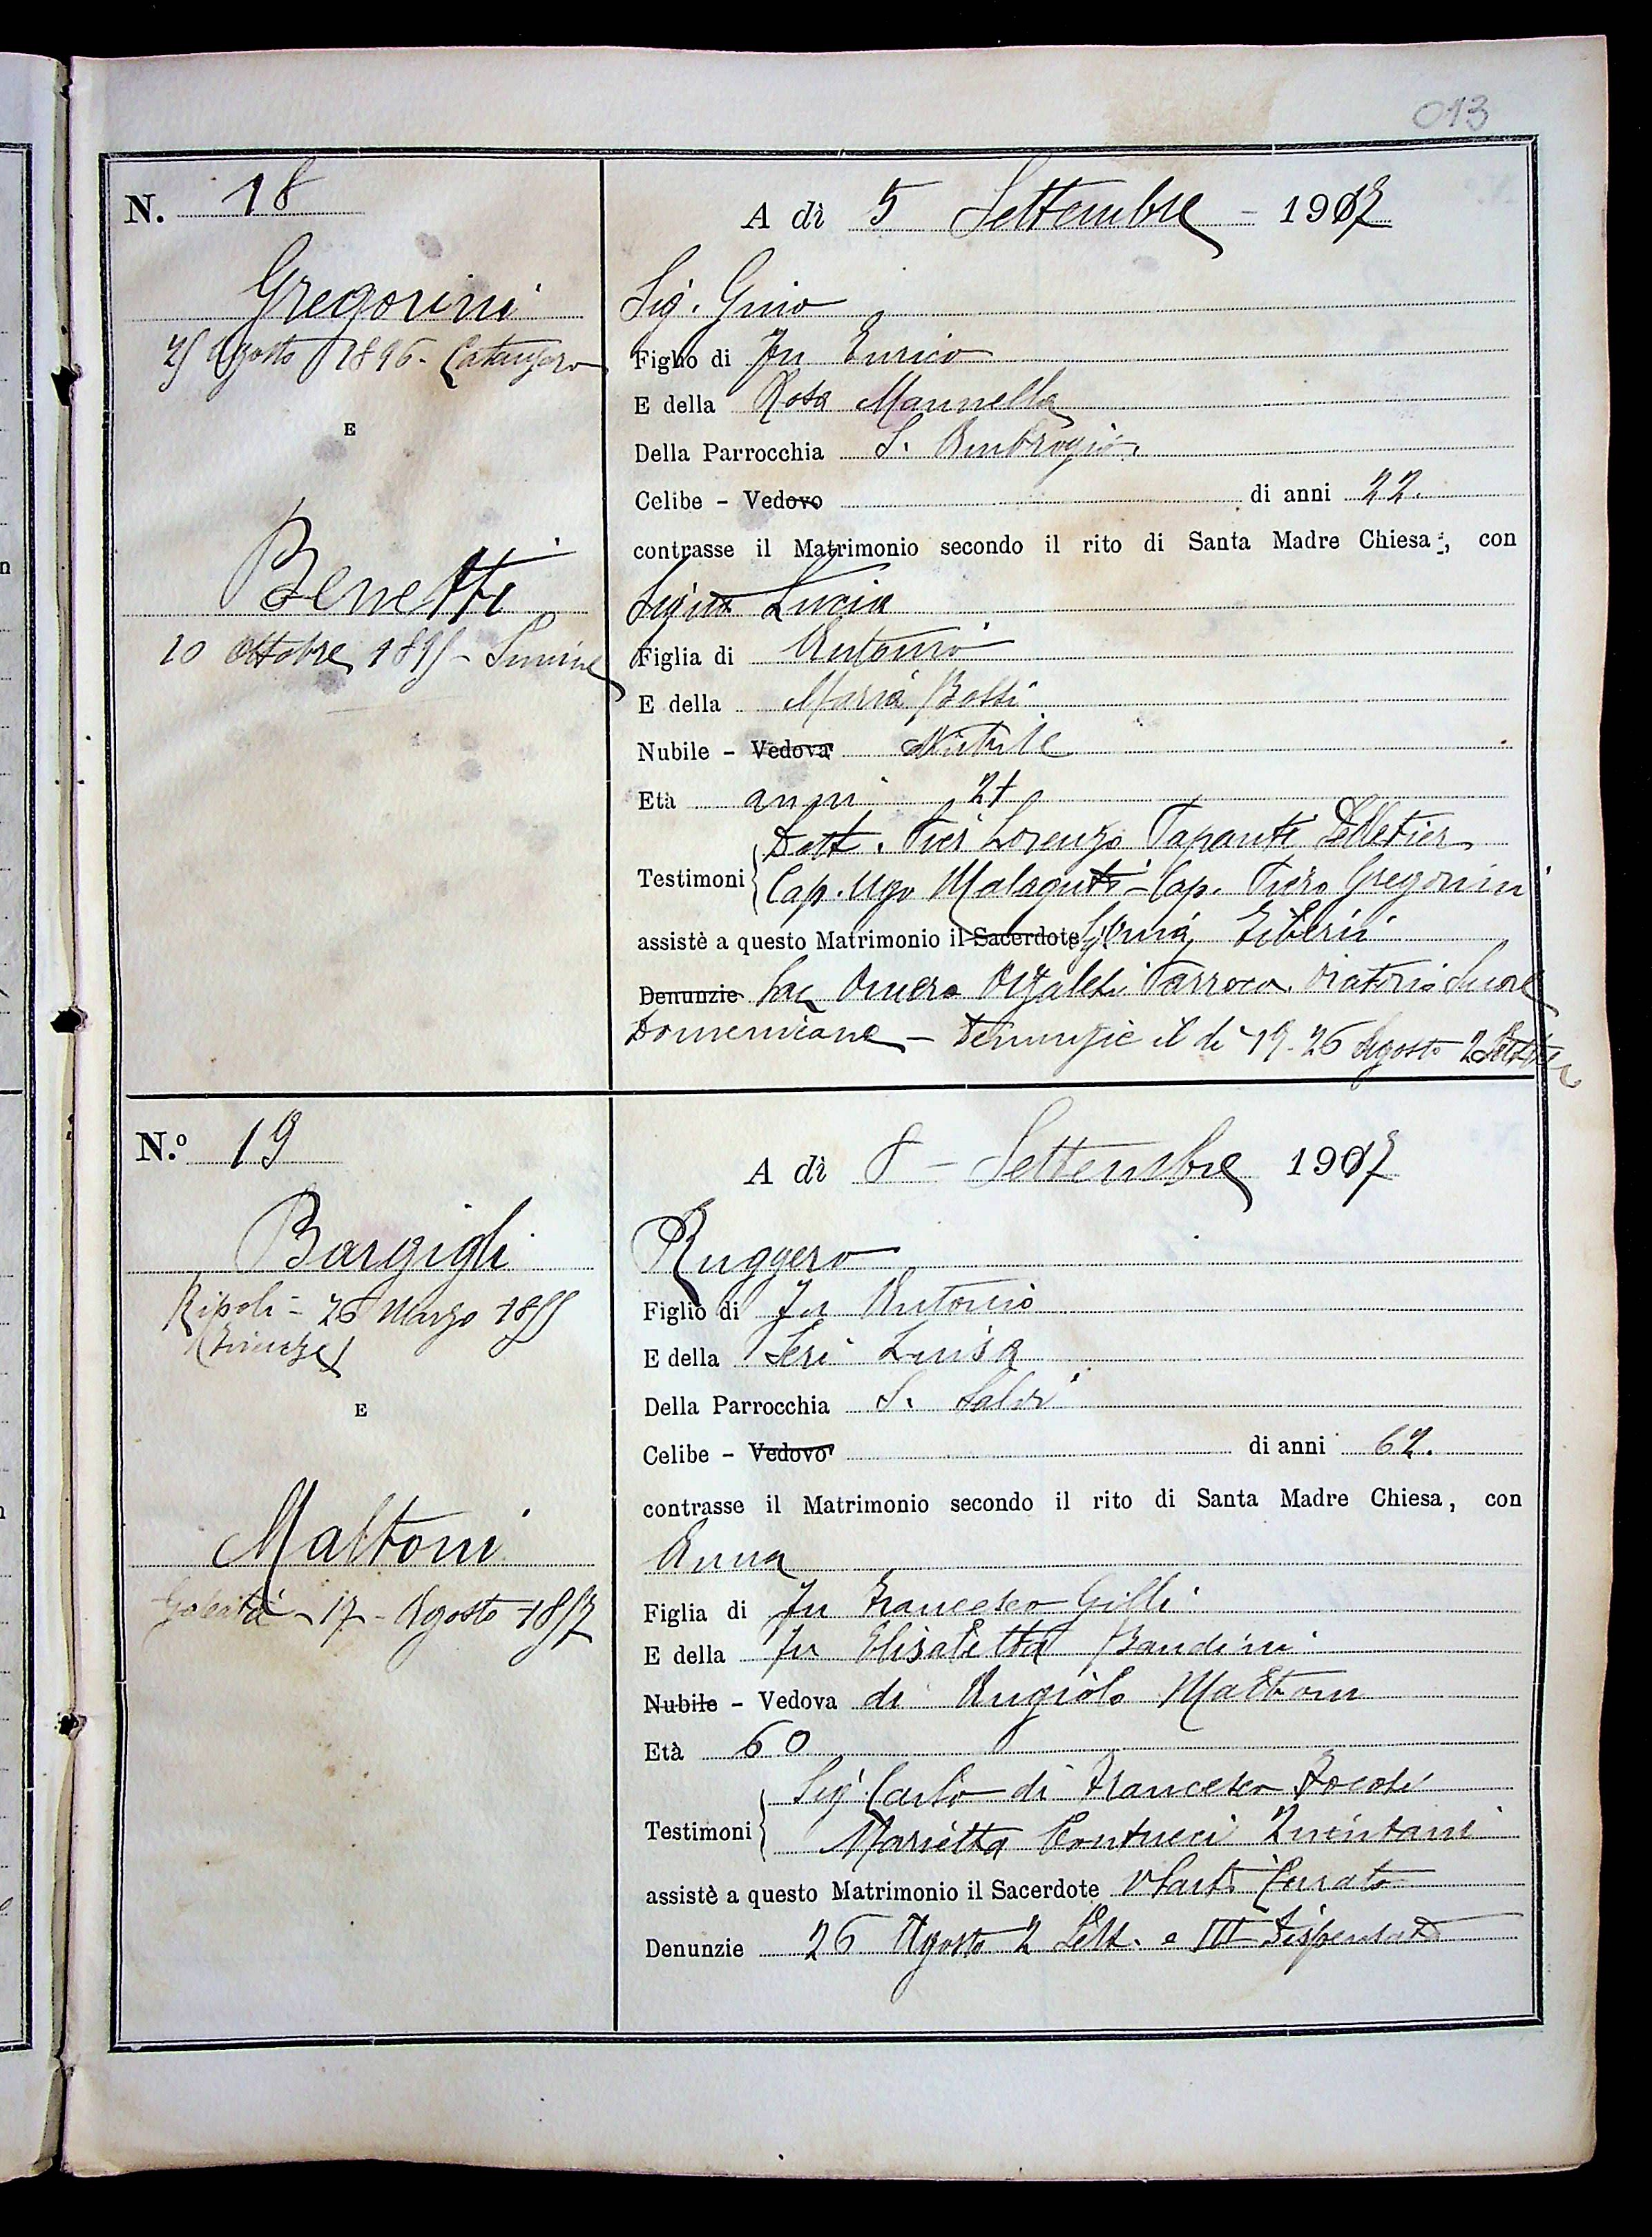 013
N. 18
A dì 5 Settembre - 1917
Gregorini
25 Agosto 1896 - Catanzaro
E
Benetti
10 Ottobre 1895 -
Sig. Gino
Figlio di fu Enrico
E della Rosa Mannella
Della Parrocchia S. Ambrogio.
Celibe - Vedovo di anni 22.
contrasse il Matrimonio secondo il rito di Santa Madre Chiesa, con
Lucia
Figlia di Antonio
E della Maria Bossi
Nubile - Vedova Nubile
Età anni 21
Testimoni Dott. Pier Lorenzo Paranti Pelletier
Cap. Ugo Malaguti - Cap. Piero Gregorini
assistè a questo Matrimonio il Sacerdote
Denunzie Sac. Parroco. Oratorio Suore
Domenicane - Denunzie il dì 19. 26 Agosto 2 Settbre
N.º 19
A dì 8 - Settembre 1917
Bargigli
Ripoli - 28 Marzo 1855
(Firenze)
E
Maltoni
Galeata - 17 - Agosto 1857
Ruggero
Figlio di fu Antonio
E della Seri Luisa
Della Parrocchia S. Salvi
Celibe - Vedovo di anni 62.
contrasse il Matrimonio secondo il rito di Santa Madre Chiesa, con
Anna
Figlia di fu Francesco Gilli
E della fu Elisabetta Bandini
Nubile - Vedova di Angiolo Maltoni
Età 60
Testimoni Sig. Carlo di Francesco
Marietta Contucci Quintani
assistè a questo Matrimonio il Sacerdote Curato
Denunzie 26 Agosto 2 Sett. e III Dispensato